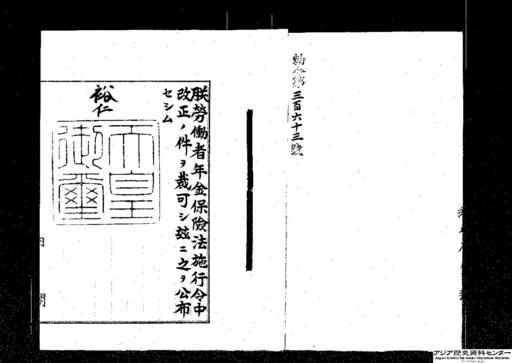 勅令第三百六十三號
朕勞働者年金保險法施行令中
改正ノ件ヲ裁可シ玆ニ之ヲ公布
セシム
裕仁
天皇
御璽
内閣
アジア歴史資料センター
Japan Center for Asian Historical Records